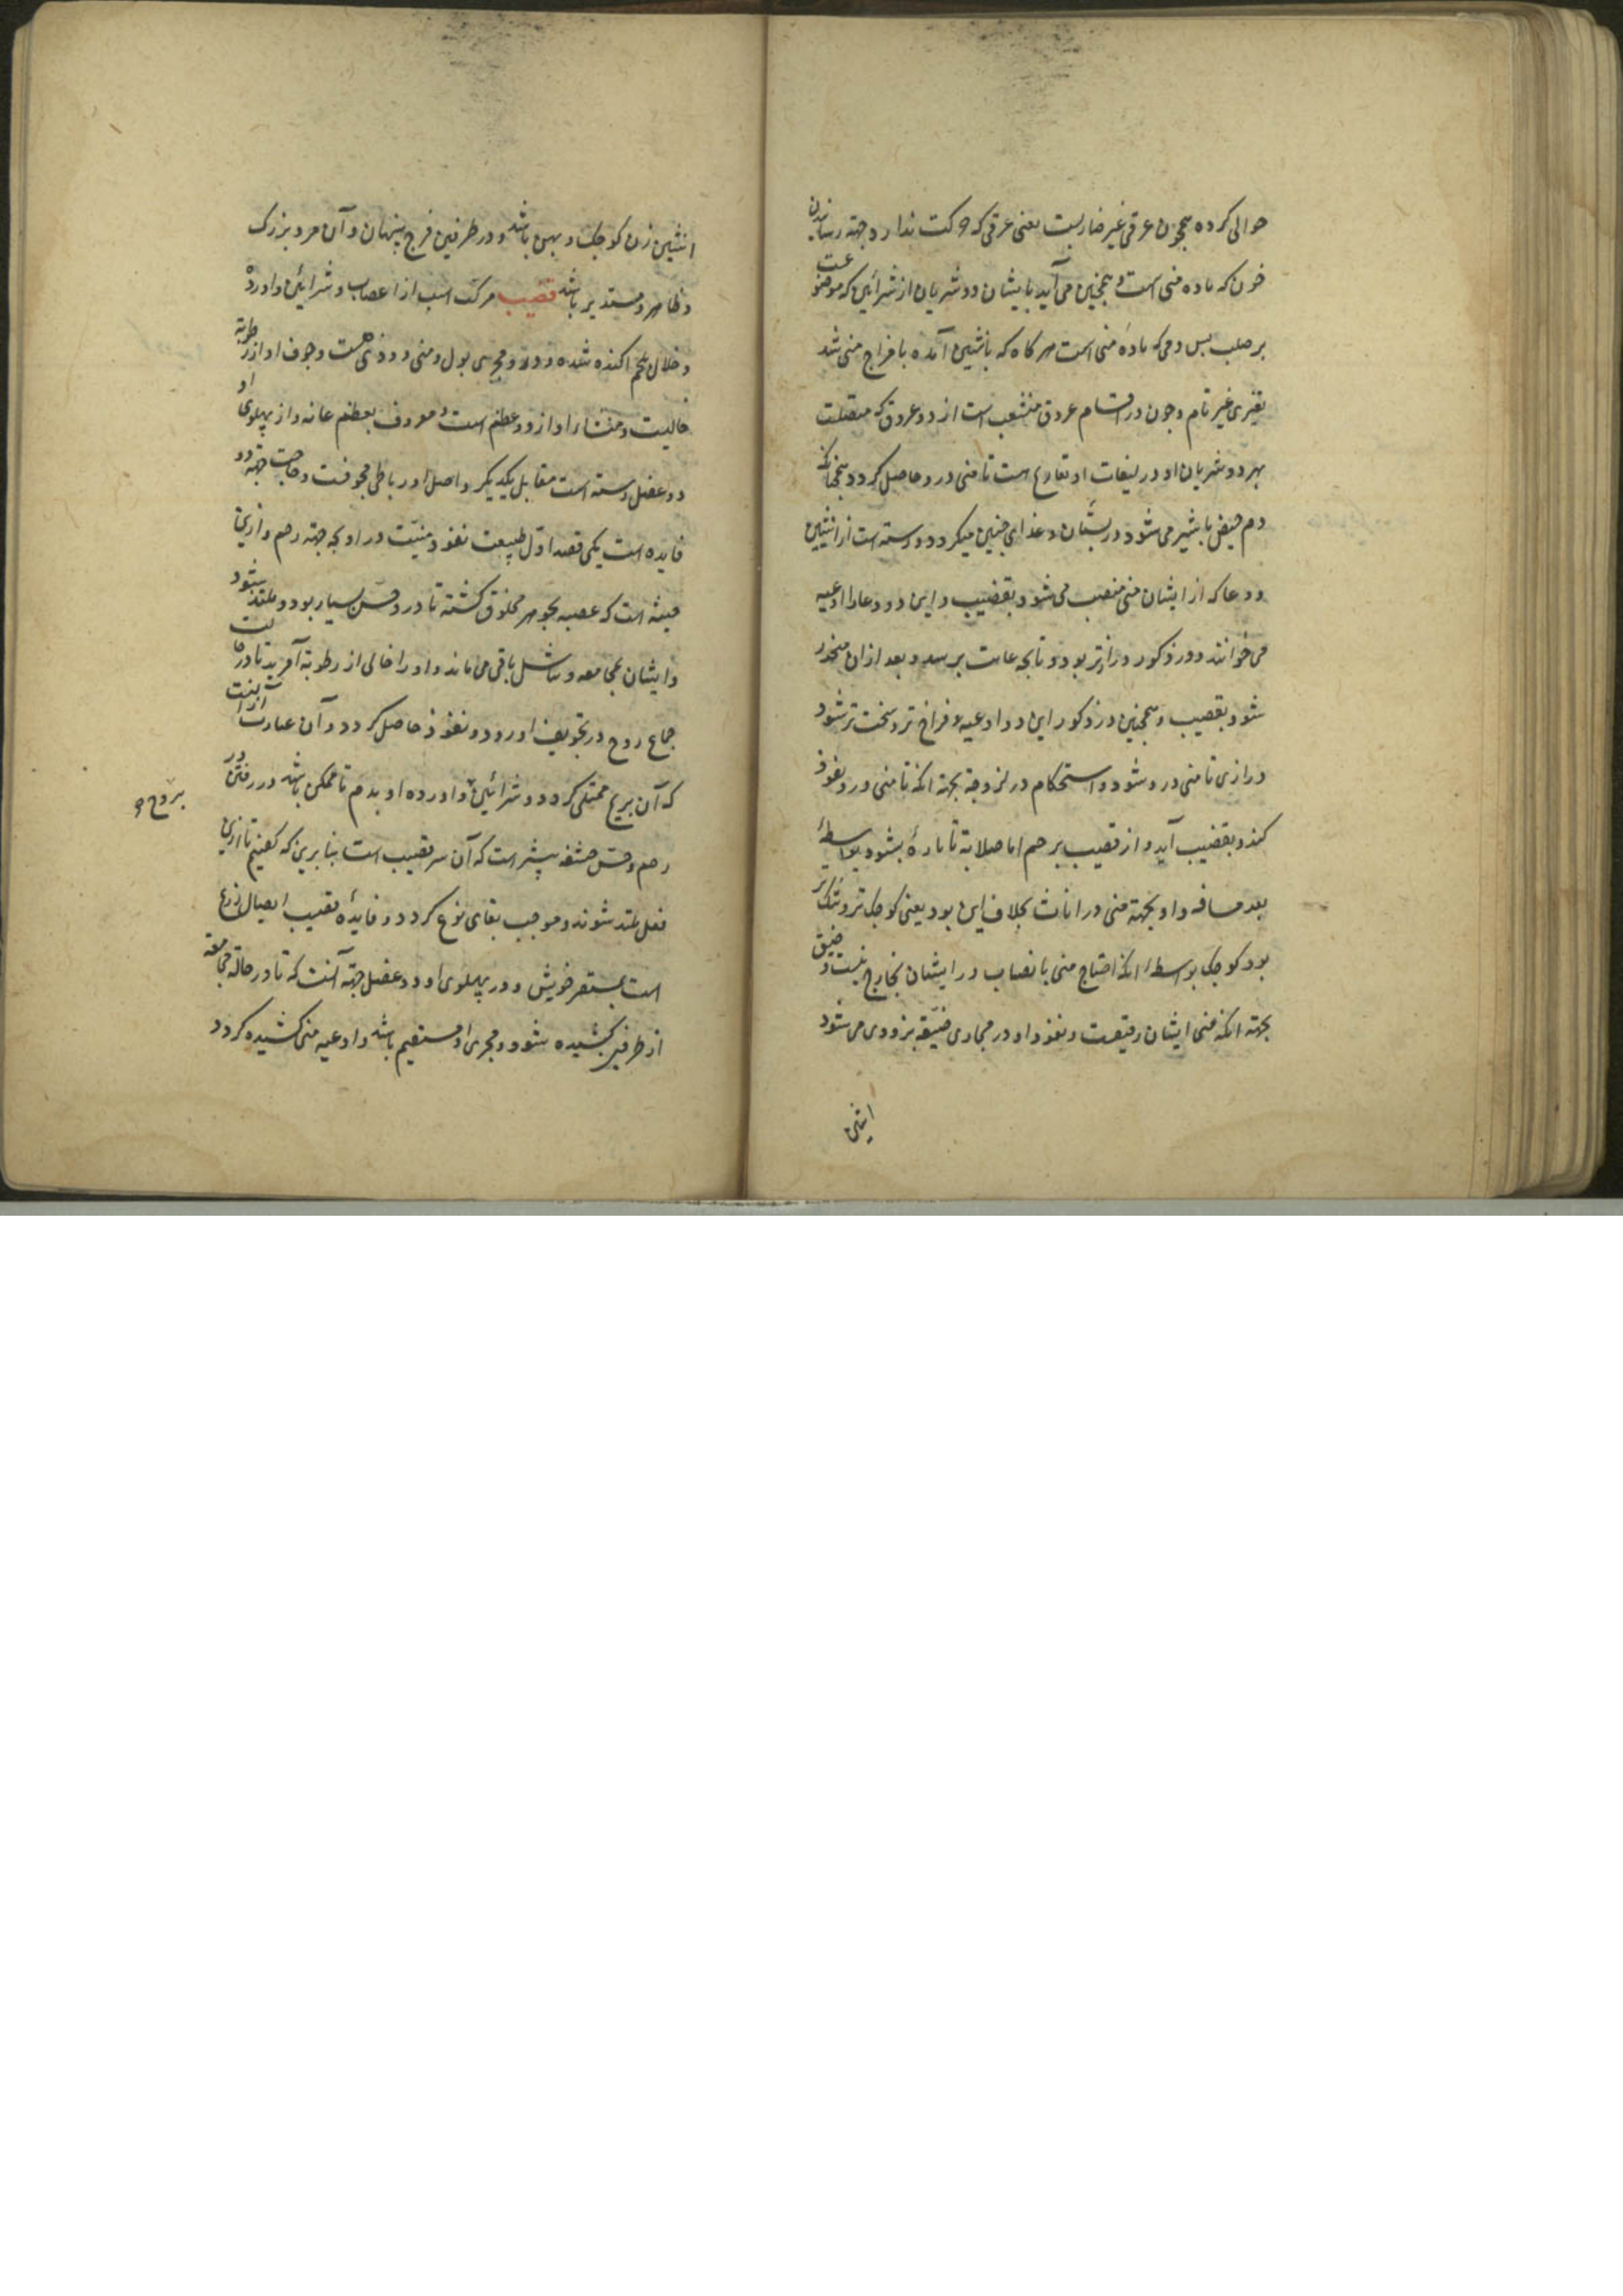 حوالی کرده همچون عرقی غیر ضاربست یعنی عرقی که حرکت ندارد وجهة رسانیدن
خون که ماده منی است و همچنین می آید بایشان دو شریان از شرائین که موضوعست
بر صلب پس دمی که مادهٔ منی است هرگاه که بانثیین آمده با فراج منی شد
تغیری غیر تام وچون در اقسام عروق منشعب است از دو عروق که متصلت
بهر دو شریان او در لیفات او تعاریج است تا منی درو حاصل کردد همچنانکه
دم حیض با شیر می شود در پستان و غذای جنین میکردد ورسته است از انثیین
دو وعا که از ایشان منی منصب می شود بقضیب و این دو وعا را اوعیه
می خوانند و در ذکور درازتر بود و تا بجه عانت برسد و بعد ازان منحدر
شود بقضیب و همچنین در ذکور این دو اوعیه فراخ تر و سخت تر شود
درازی تا منی درو شود و استحکام در لزوجة بجهة انکه تا منی درو نفوذ
کند و بقضیب آید و از قضیب برحم اما صلابة تا پاره نشود بواسطهٔ
بعد مسافه و اوعیه منی در اناث بخلاف این بود یعنی کوچک تر و تنک تر
بود کوچک بواسطهٔ انکه احتیاج منی بانصباب در ایشان بخارج نیست و ضیق
بجهة انکه منی ایشان رقیقست و نفوذ او در مجاری ضیقه بزودی می شود
انثیین
انثیین زن کوچک و پهن باشد و در طرفین فرج پنهان و آن مرد بزرک
و ظاهر و مستدیر باشد قضیب مرکب است از اعصاب و شرائین و اورده
و خلال بلحم اکنده شده و درو مجرای بول و منی و ودی هست و جوف او از رطوبة
خالیست و منشاء او از دو عظم است معروف بعظم عانه و از پهلوی او
دو عضل رسته است مقابل یکدیکر و اصل او رباطی مجوفست و حاجت جهة دو
فایده است یکی قصد اول طبیعت نفوذ منیت در او بجهة رحم و ازین
حیثه است که عصبه بجوهر مخلوق کشته تا درو حس بسیار بود و ملتذ شود
و ایشان بمجامعه و تناسل باقی می ماند و او را خالی از رطوبة آفرید تا در حالت
جماع روح در تجویف او رود و نفوذ حاصل کردد و آن عبارت از انست
که آن بریح ممتلی کردد و شرائین و اورده او بدم تا ممکن باشد در رفتن در
رحم و حس حشفه بیشتر است که آن سر قضیب است بنابرین که کفتیم تا ازین
فعل ملتذ شوند و موجب بقای نوع کردد و فایدهٔ قضیب ایصال زرع
است بمستقر خویش و در پهلوی او دو عضل جهة آنست که تا در حالة مجامعه
از طرفین کشیده شود و مجری او مستقیم باشد و اوعیه منی کشیده کردد
بروح و